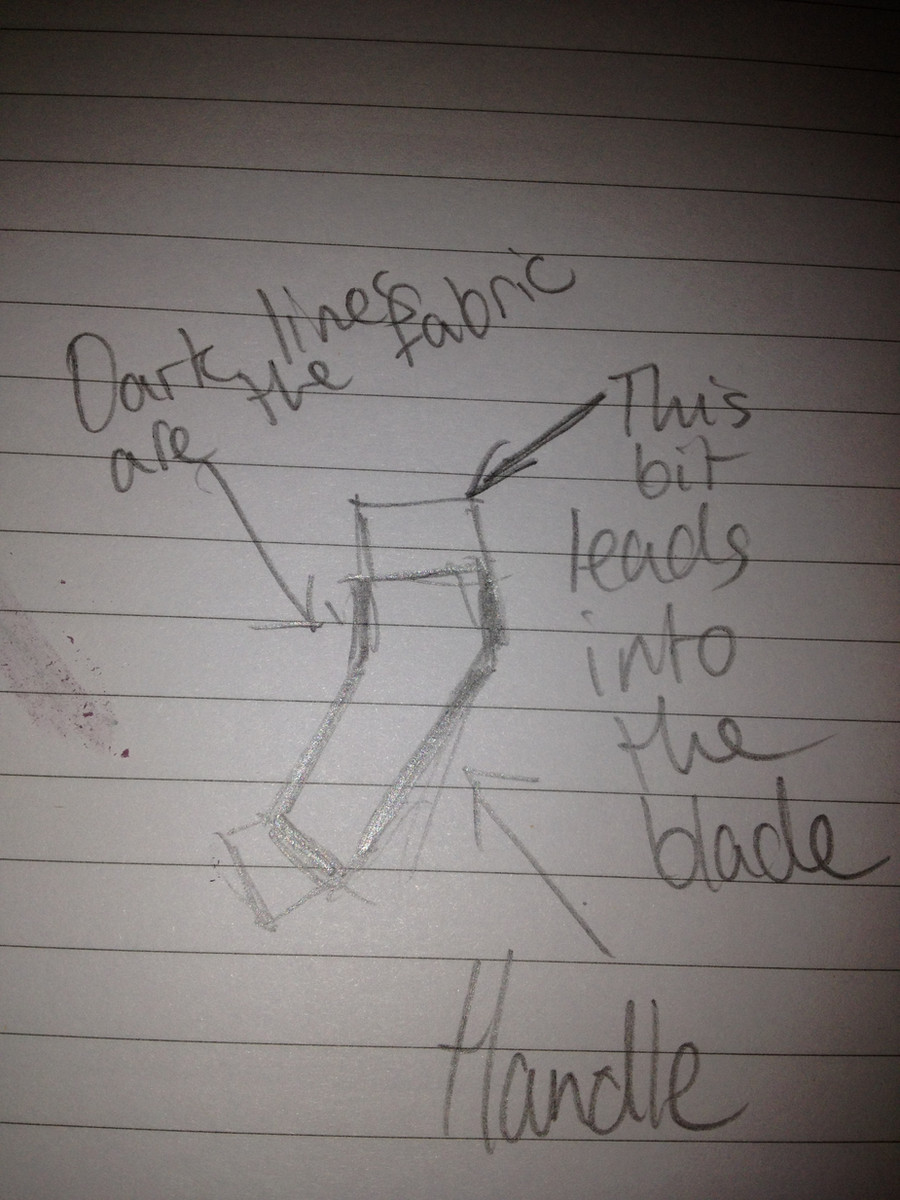 Dark lines
are the fabric
This
bit
leads
into
the
blade
Handle